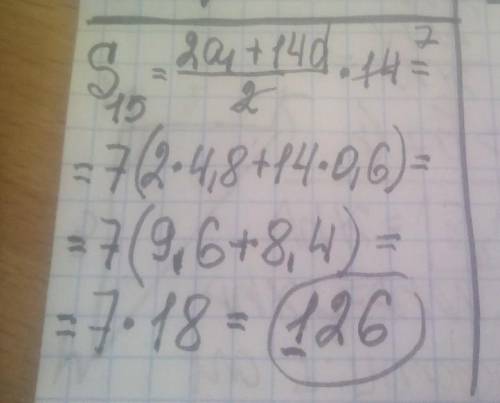 S₁₅ = (2a₁ + 14d)/2 · 14⁷ =
= 7(2·4,8 + 14·0,6) =
= 7(9,6 + 8,4) =
= 7·18 = 126